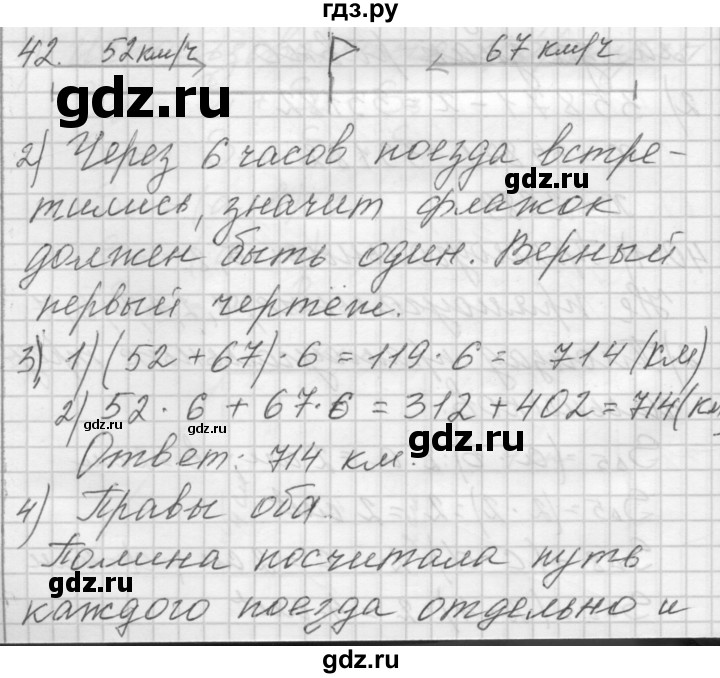 гдз.ру
42. 52км/ч 67 км/ч
gdz.ru gdz.ru
2) Через 6 часов поезда встре-
gdz.ru
тились, значит флажок
должен быть один. Верный
gdz.ru
первый чертёж.
3) 1) (52+67)·6=119·6= 714(км)
2) 52·6+67·6=312+402=714(км
gdz.ru gdz.ru gdz.ru
Ответ: 714 км.
4) Правы оба.
Полина посчитала путь
gdz.ru gdz.ru
каждого поезда отдельно и
gdz.ru